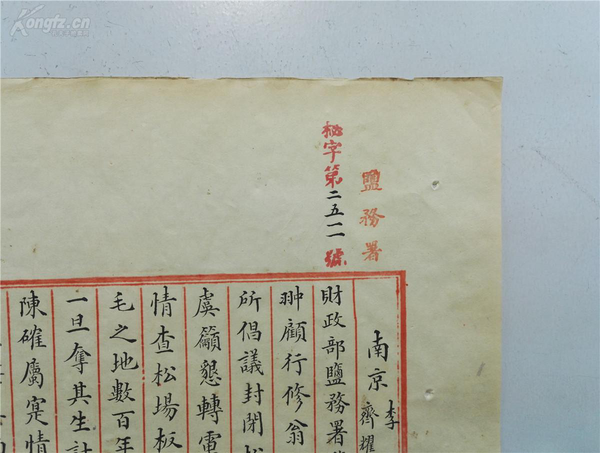 Kongfz.cn
鹽務署
秘字第二五一一號
南京 李
齊耀
財政部鹽務署
翀顧行修翁
所倡議封閉松
虞籲懇轉電
情查松場板
毛之地數百年
一旦奪其生計
陳確屬寔情